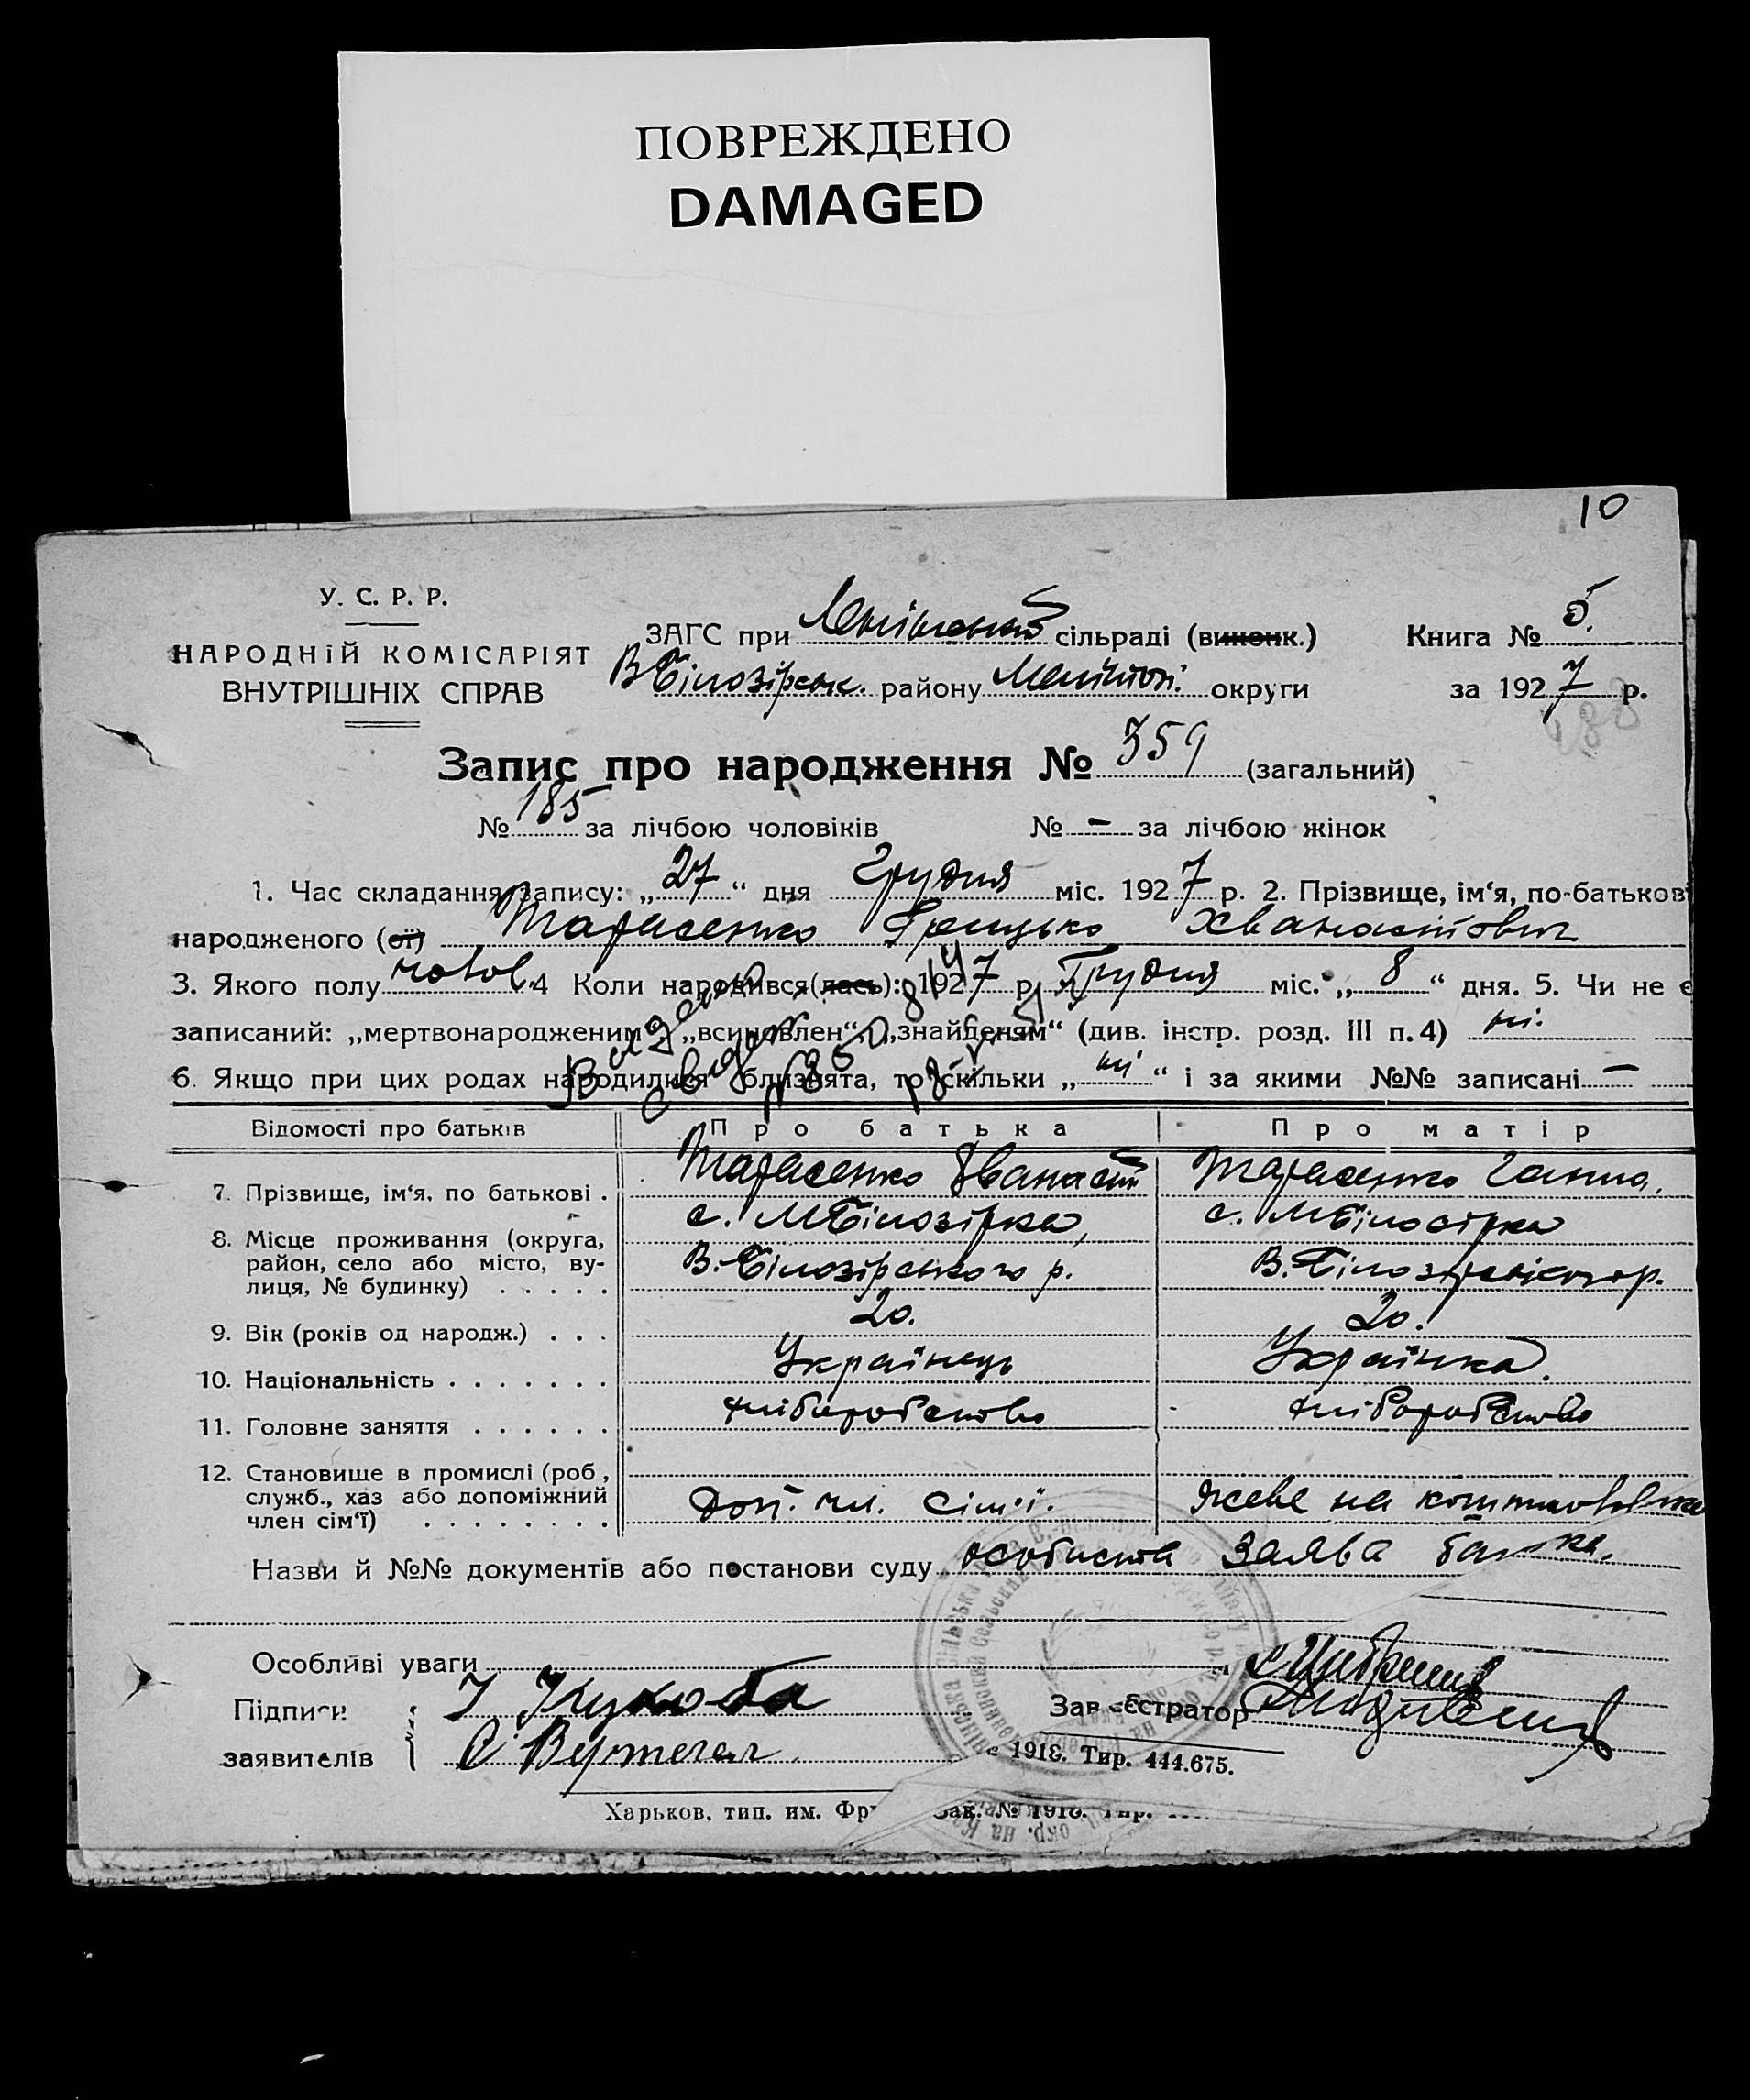 ПОВРЕЖДЕНО
DAMAGED
10
У. С. Р. Р.
НАРОДНІЙ КОМІСАРІЯТ
ВНУТРІШНІХ СПРАВ
ЗАГС при сільраді (виконк.)
Книга № 5.
В Білозірськ. району Меліттоп. округи
за 1927 р.
Запис про народження № 359 (загальний)
№ 185 за лічбою чоловіків № – за лічбою жінок
1. Час складання запису: „27“ дня Грудня міс. 1927 р. 2. Прізвище, ім‘я, по-батькові
народженого (ої) Тарасенко Грицько Хванастович
3. Якого полу чолов. 4 Коли народився(лась): 1927 р. Грудня міс. „8“ дня. 5. Чи не є
записаний: „мертвонародженим“, „всиновлен“, „знайденям“ (див. інстр. розд. III п. 4) ні.
6. Якщо при цих родах народилися близнята, то скільки „ні“ і за якими №№ записані –
Відомості про батьків Про батька Про матір
7. Прізвище, ім‘я, по батькові . Тарасенко Хванаст Тарасенко Ганна.
8. Місце проживання (округа, с. М Білозірка, с. М Білозірка
район, село або місто, ву- В. Білозірського р. В. Білозірського р.
лиця, № будинку) . . . . .
9. Вік (років од народж.) . . . 20. 20.
10. Національність . . . . . . . Українець Українка.
11. Головне заняття . . . . . . хліборобство хліборобство
12. Становище в промислі (роб.,
служб., хаз або допоміжний Доп. чл. сім'ї. живе на
член сім‘ї) . . . . . . . .
Назви й №№ документів або постанови суду особиста заява батька.
Особливі уваги
Підписи
заявителів
Зав -єстратор
1918. Тир. 444.675.
Харьков, тип. им. Фр Зак. № 1918.